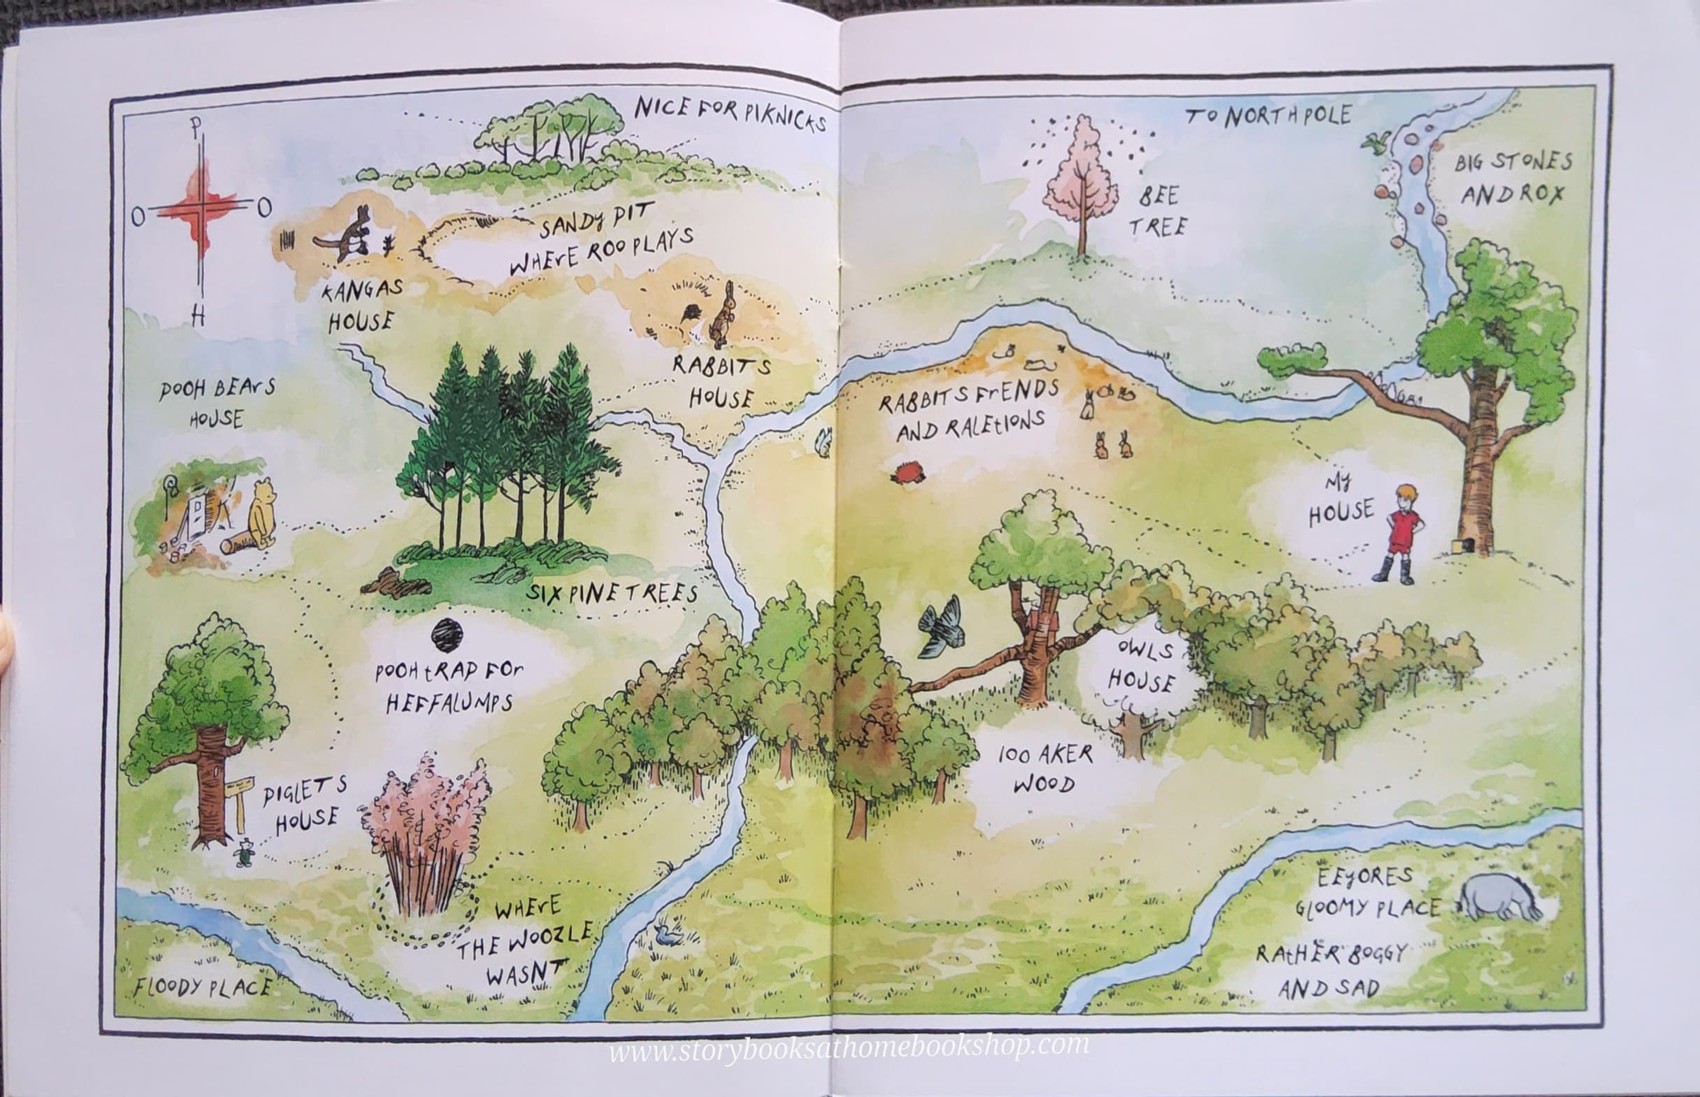 NICE FOR PIKNICKS
TO NORTH POLE
P
O
O
H
BIG STONES
AND ROX
BEE
TREE
SANDy PIT
WHErE ROO PLAYS
KANGAS
HOUSE
RABBITS
HOUSE
POOH BEArS
HOUSE
RABBITS FrENDS
AND RALEtIONS
My
HOUSE
SIX PINE TREES
POOH tRAP FOr
HEFFALUMPS
OWLS
HOUSE
100 AKER
WOOD
PIGLETS
HOUSE
WHErE
THE WOOZLE
WASNT
FLOODY PLACE
EEyORES
GLOOMY PLACE
RAtHEr BOGGY
AND SAD
www.storybooksathomebookshop.com